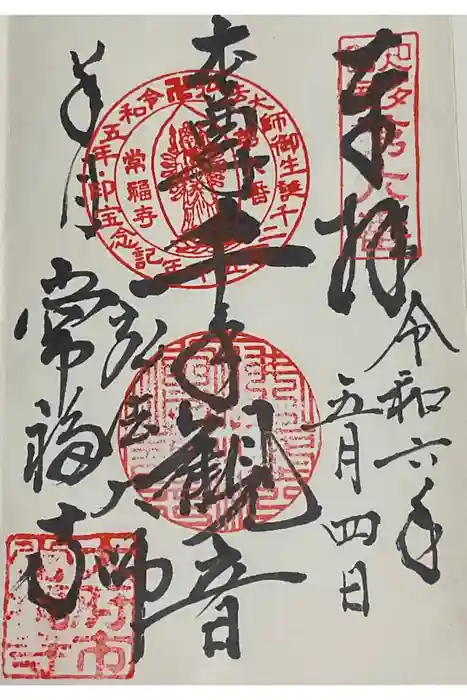 奉拝
令和六年
五月四日
本尊千手観音
弘法大師
半月
常福寺
弘法大師御生誕千二百五十年記念宝印・令和五年
第六番
常福寺